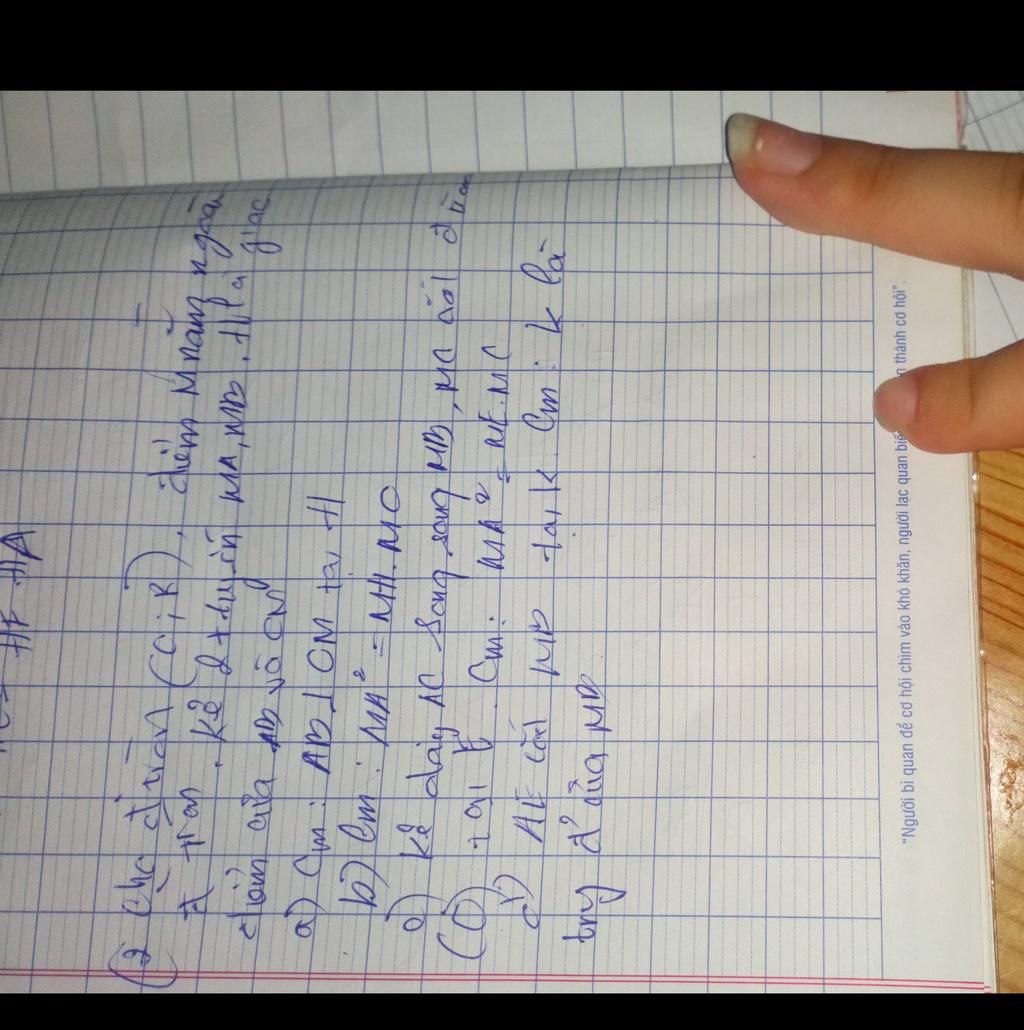 HE.HA
2 Cho đ tròn (O;R), điểm M nằm ngoài
đ tròn. Kẻ 2 t tuyến MA, MB. H là giao
điểm của AB và OM
a) Cm: AB ⊥ OM tại H
b) Cm: MA² = MH.MO
c) Kẻ dây AC song song MB, MC cắt đ tròn
(O) tại E. Cm: MA² = ME.MC
d) AE cắt MB tại K. Cm: K là
trg đ' của MB
"Người bi quan để cơ hội chìm vào khó khăn, người lạc quan biế n thành cơ hội".